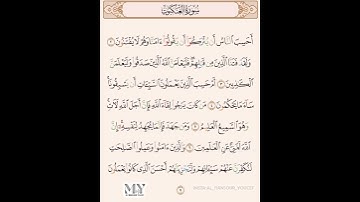 سُورَةُ الْعَنكَبُوتِ
أَحَسِبَ النَّاسُ أَن يُتْرَكُوا أَن يَقُولُوا ءَامَنَّا وَهُمْ لَا يُفْتَنُونَ ٢
وَلَقَدْ فَتَنَّا الَّذِينَ مِن قَبْلِهِمْ فَلَيَعْلَمَنَّ اللَّهُ الَّذِينَ صَدَقُوا وَلَيَعْلَمَنَّ
الْكَاذِبِينَ ٣ أَمْ حَسِبَ الَّذِينَ يَعْمَلُونَ السَّيِّئَاتِ أَن يَسْبِقُونَا
سَاءَ مَا يَحْكُمُونَ ٤ مَن كَانَ يَرْجُوا لِقَاءَ اللَّهِ فَإِنَّ أَجَلَ اللَّهِ لَآتٍ
وَهُوَ السَّمِيعُ الْعَلِيمُ ٥ وَمَن جَاهَدَ فَإِنَّمَا يُجَاهِدُ لِنَفْسِهِ إِنَّ
اللَّهَ لَغَنِيٌّ عَنِ الْعَالَمِينَ ٦ وَالَّذِينَ ءَامَنُوا وَعَمِلُوا الصَّالِحَاتِ
لَنُكَفِّرَنَّ عَنْهُمْ سَيِّئَاتِهِمْ وَلَنَجْزِيَنَّهُمْ أَحْسَنَ الَّذِي كَانُوا يَعْمَلُونَ
MY